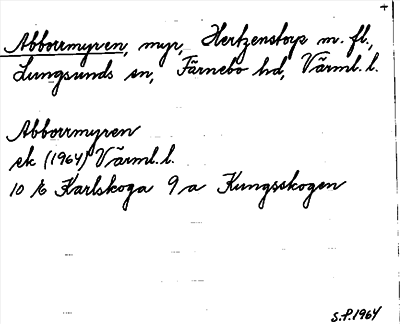 +
Abborrmyren, myr, Hertzenstorp m. fl.,
Lungsunds sn, Färnebo hd, Värml. l.
Abborrmyren
ek (1964) Värml. l.
10 E Karlskoga 9 a Kungsskogen
S.P. 1964